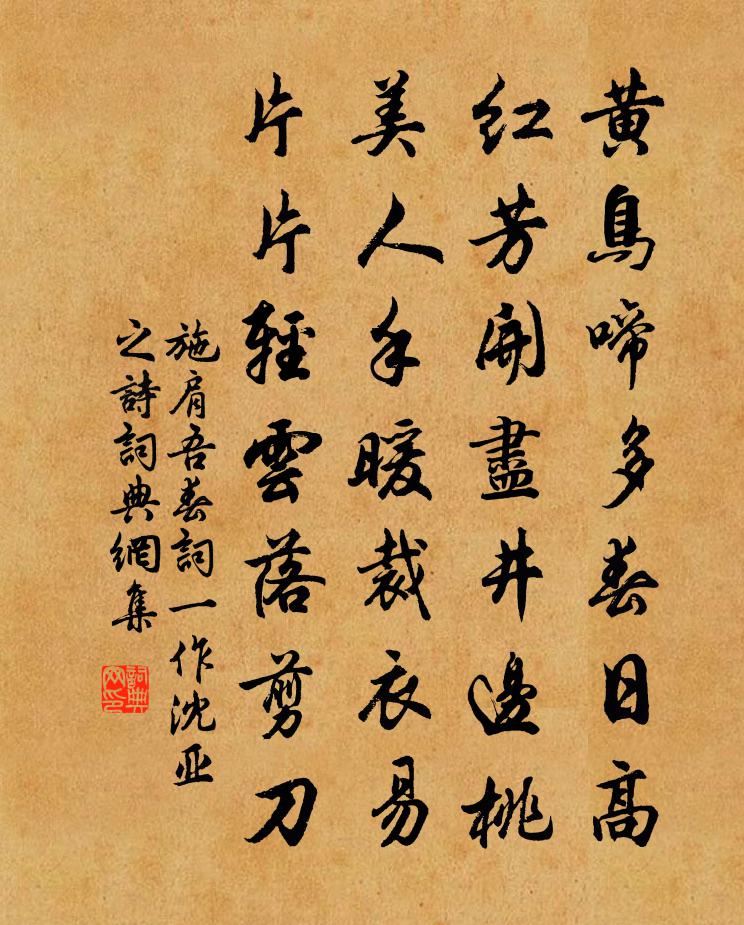 黄鳥啼多春日高
紅芳開盡井邊桃
美人手暖裁衣易
片片輕雲落剪刀
施肩吾春詞一作沈亚
之詩詞典網集
詞典
网印